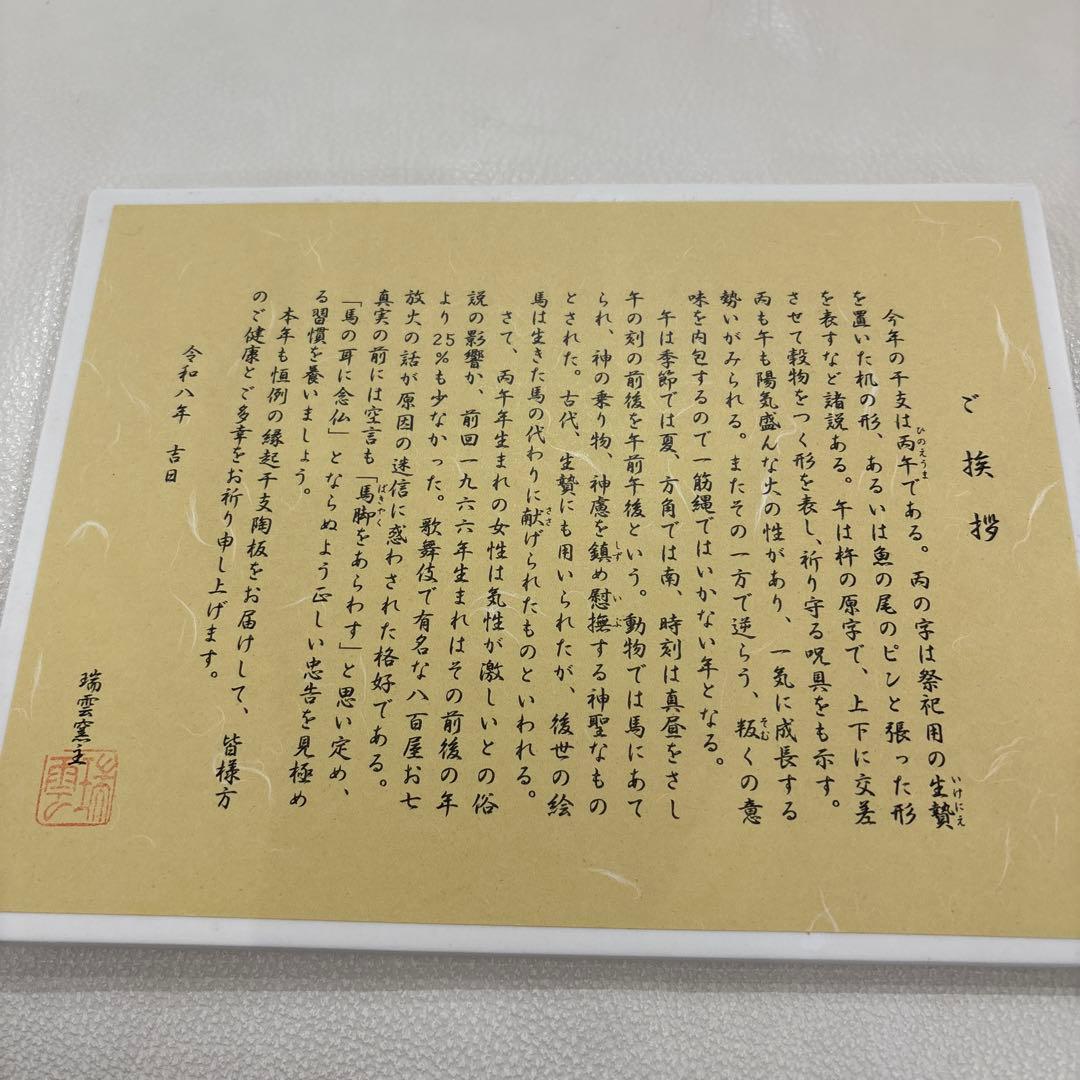 ご挨拶
今年の干支は丙午である。丙の字は祭祀用の生贄
ひのえうま
いけにえ
を置いた机の形、あるいは魚の尾のピンと張った形
を表すなど諸説ある。午は杵の原字で、上下に交差
させて穀物をつく形を表し、祈り守る呪具をも示す。
丙も午も陽気盛んな火の性があり、一気に成長する
勢いがみられる。またその一方で逆らう、叛くの意
そむ
味を内包するので一筋縄ではいかない年となる。
午は季節では夏、方角では南、時刻は真昼をさし
午の刻の前後を午前午後という。動物では馬にあて
られ、神の乗り物、神慮を鎮め慰撫する神聖なもの
しず
いぶ
とされた。古代、生贄にも用いられたが、後世の絵
馬は生きた馬の代わりに献げられたものといわれる。
ささ
さて、丙午年生まれの女性は気性が激しいとの俗
説の影響か、前回一九六六年生まれはその前後の年
より25%も少なかった。歌舞伎で有名な八百屋お七
放火の話が原因の迷信に惑わされた格好である。
真実の前には空言も「馬脚をあらわす」と思い定め、
ばきゃく
「馬の耳に念仏」とならぬよう正しい忠告を見極め
る習慣を養いましょう。
本年も恒例の縁起干支陶板をお届けして、皆様方
のご健康とご多幸をお祈り申し上げます。
令和八年 吉日
瑞雲窯主
瑞雲